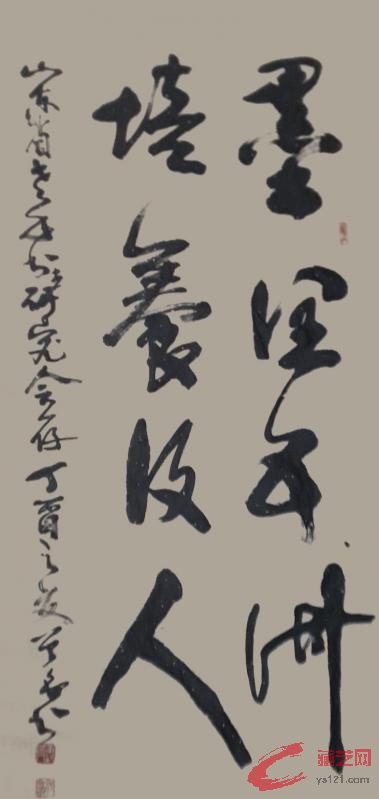 墨润五洲
培养后人
山东省老年书法研究会存 丁酉之夏
藏艺网
ys121.com